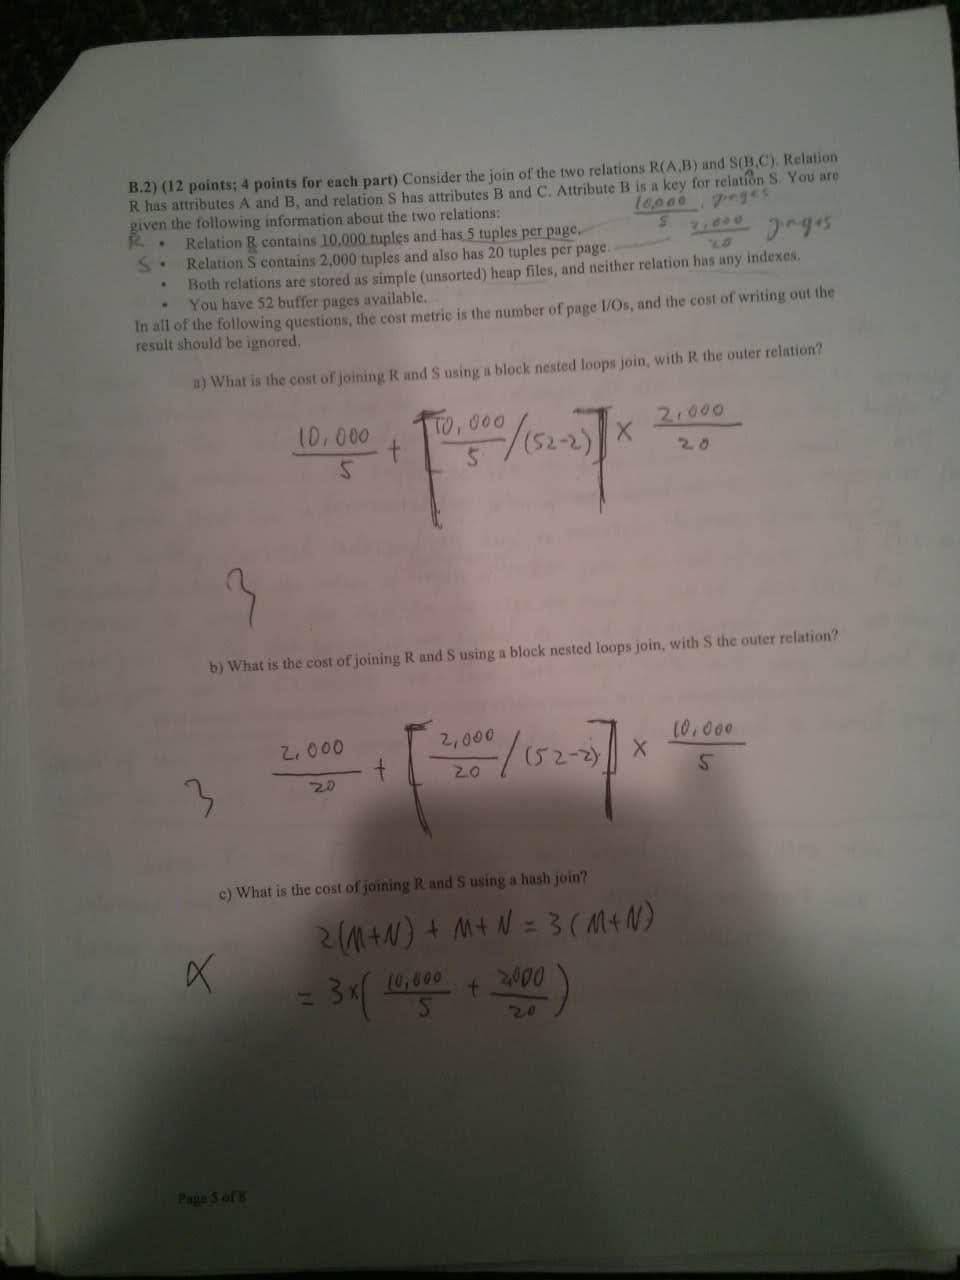 B.2) (12 points; 4 points for each part) Consider the join of the two relations R(A,B) and S(B,C). Relation
R has attributes A and B, and relation S has attributes B and C. Attribute B is a key for relation S. You are
given the following information about the two relations:
10,000 / 5 pages
R • Relation R contains 10,000 tuples and has 5 tuples per page.
2,000 / 20 pages
S • Relation S contains 2,000 tuples and also has 20 tuples per page.
• Both relations are stored as simple (unsorted) heap files, and neither relation has any indexes.
• You have 52 buffer pages available.
In all of the following questions, the cost metric is the number of page I/Os, and the cost of writing out the
result should be ignored.
a) What is the cost of joining R and S using a block nested loops join, with R the outer relation?
10,000 / 5 + ⌈ 10,000 / 5 / (52-2) ⌉ × 2,000 / 20
3
b) What is the cost of joining R and S using a block nested loops join, with S the outer relation?
3 2,000 / 20 + ⌈ 2,000 / 20 / (52-2) ⌉ × 10,000 / 5
c) What is the cost of joining R and S using a hash join?
2(M+N) + M+N = 3(M+N)
= 3×( 10,000 / 5 + 2,000 / 20 )
Page 5 of 8